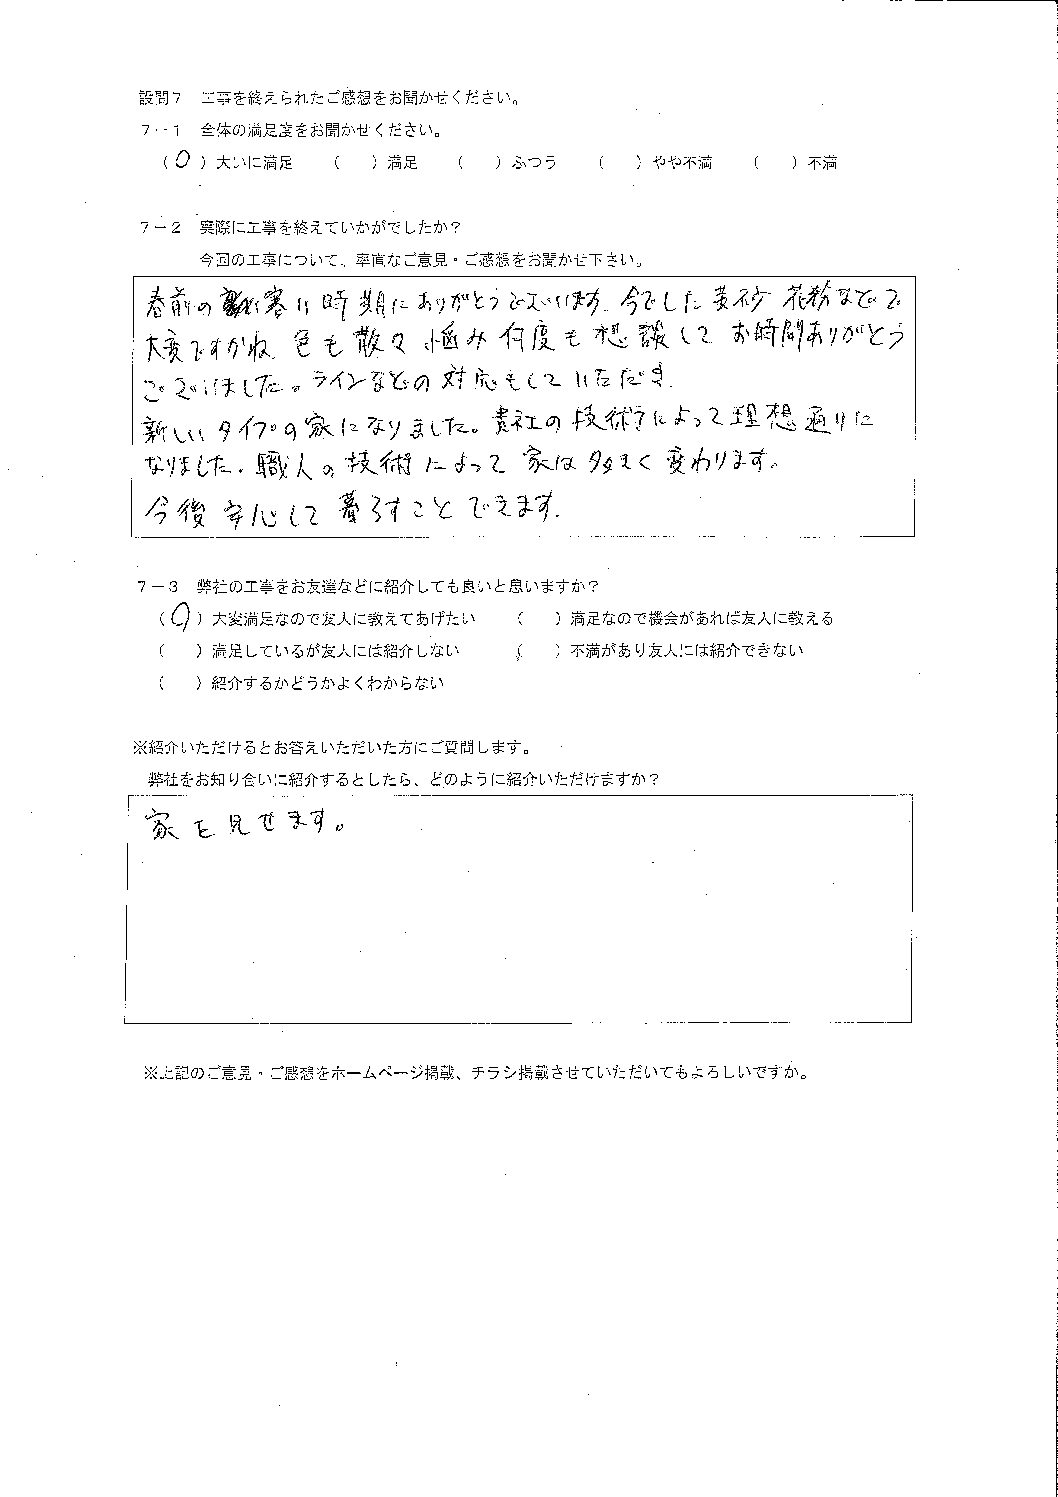 設問7　工事を終えられたご感想をお聞かせください。
7－1　全体の満足度をお聞かせください。
（〇）大いに満足　（　）満足　（　）ふつう　（　）やや不満　（　）不満
7－2　実際に工事を終えていかがでしたか？
今回の工事について、率直なご意見・ご感想をお聞かせ下さい。
春前の 寒い時期にありがとうございます。今でした黄砂 花粉などで
大変ですかね。色も散々悩み何度も想談して お時間ありがとう
ございました。ラインなどの対応もしていただき.
新しいタイプの家になりました。貴社の技術によって理想通りに
なりました。職人の技術によって家は 変わります。
今後安心して暮らすことできます.
7－3　弊社の工事をお友達などに紹介しても良いと思いますか？
（〇）大変満足なので友人に教えてあげたい　（　）満足なので機会があれば友人に教える
（　）満足しているが友人には紹介しない　（　）不満があり友人には紹介できない
（　）紹介するかどうかよくわからない
※紹介いただけるとお答えいただいた方にご質問します。
弊社をお知り合いに紹介するとしたら、どのように紹介いただけますか？
家を見せます。
※上記のご意見・ご感想をホームページ掲載、チラシ掲載させていただいてもよろしいですか。